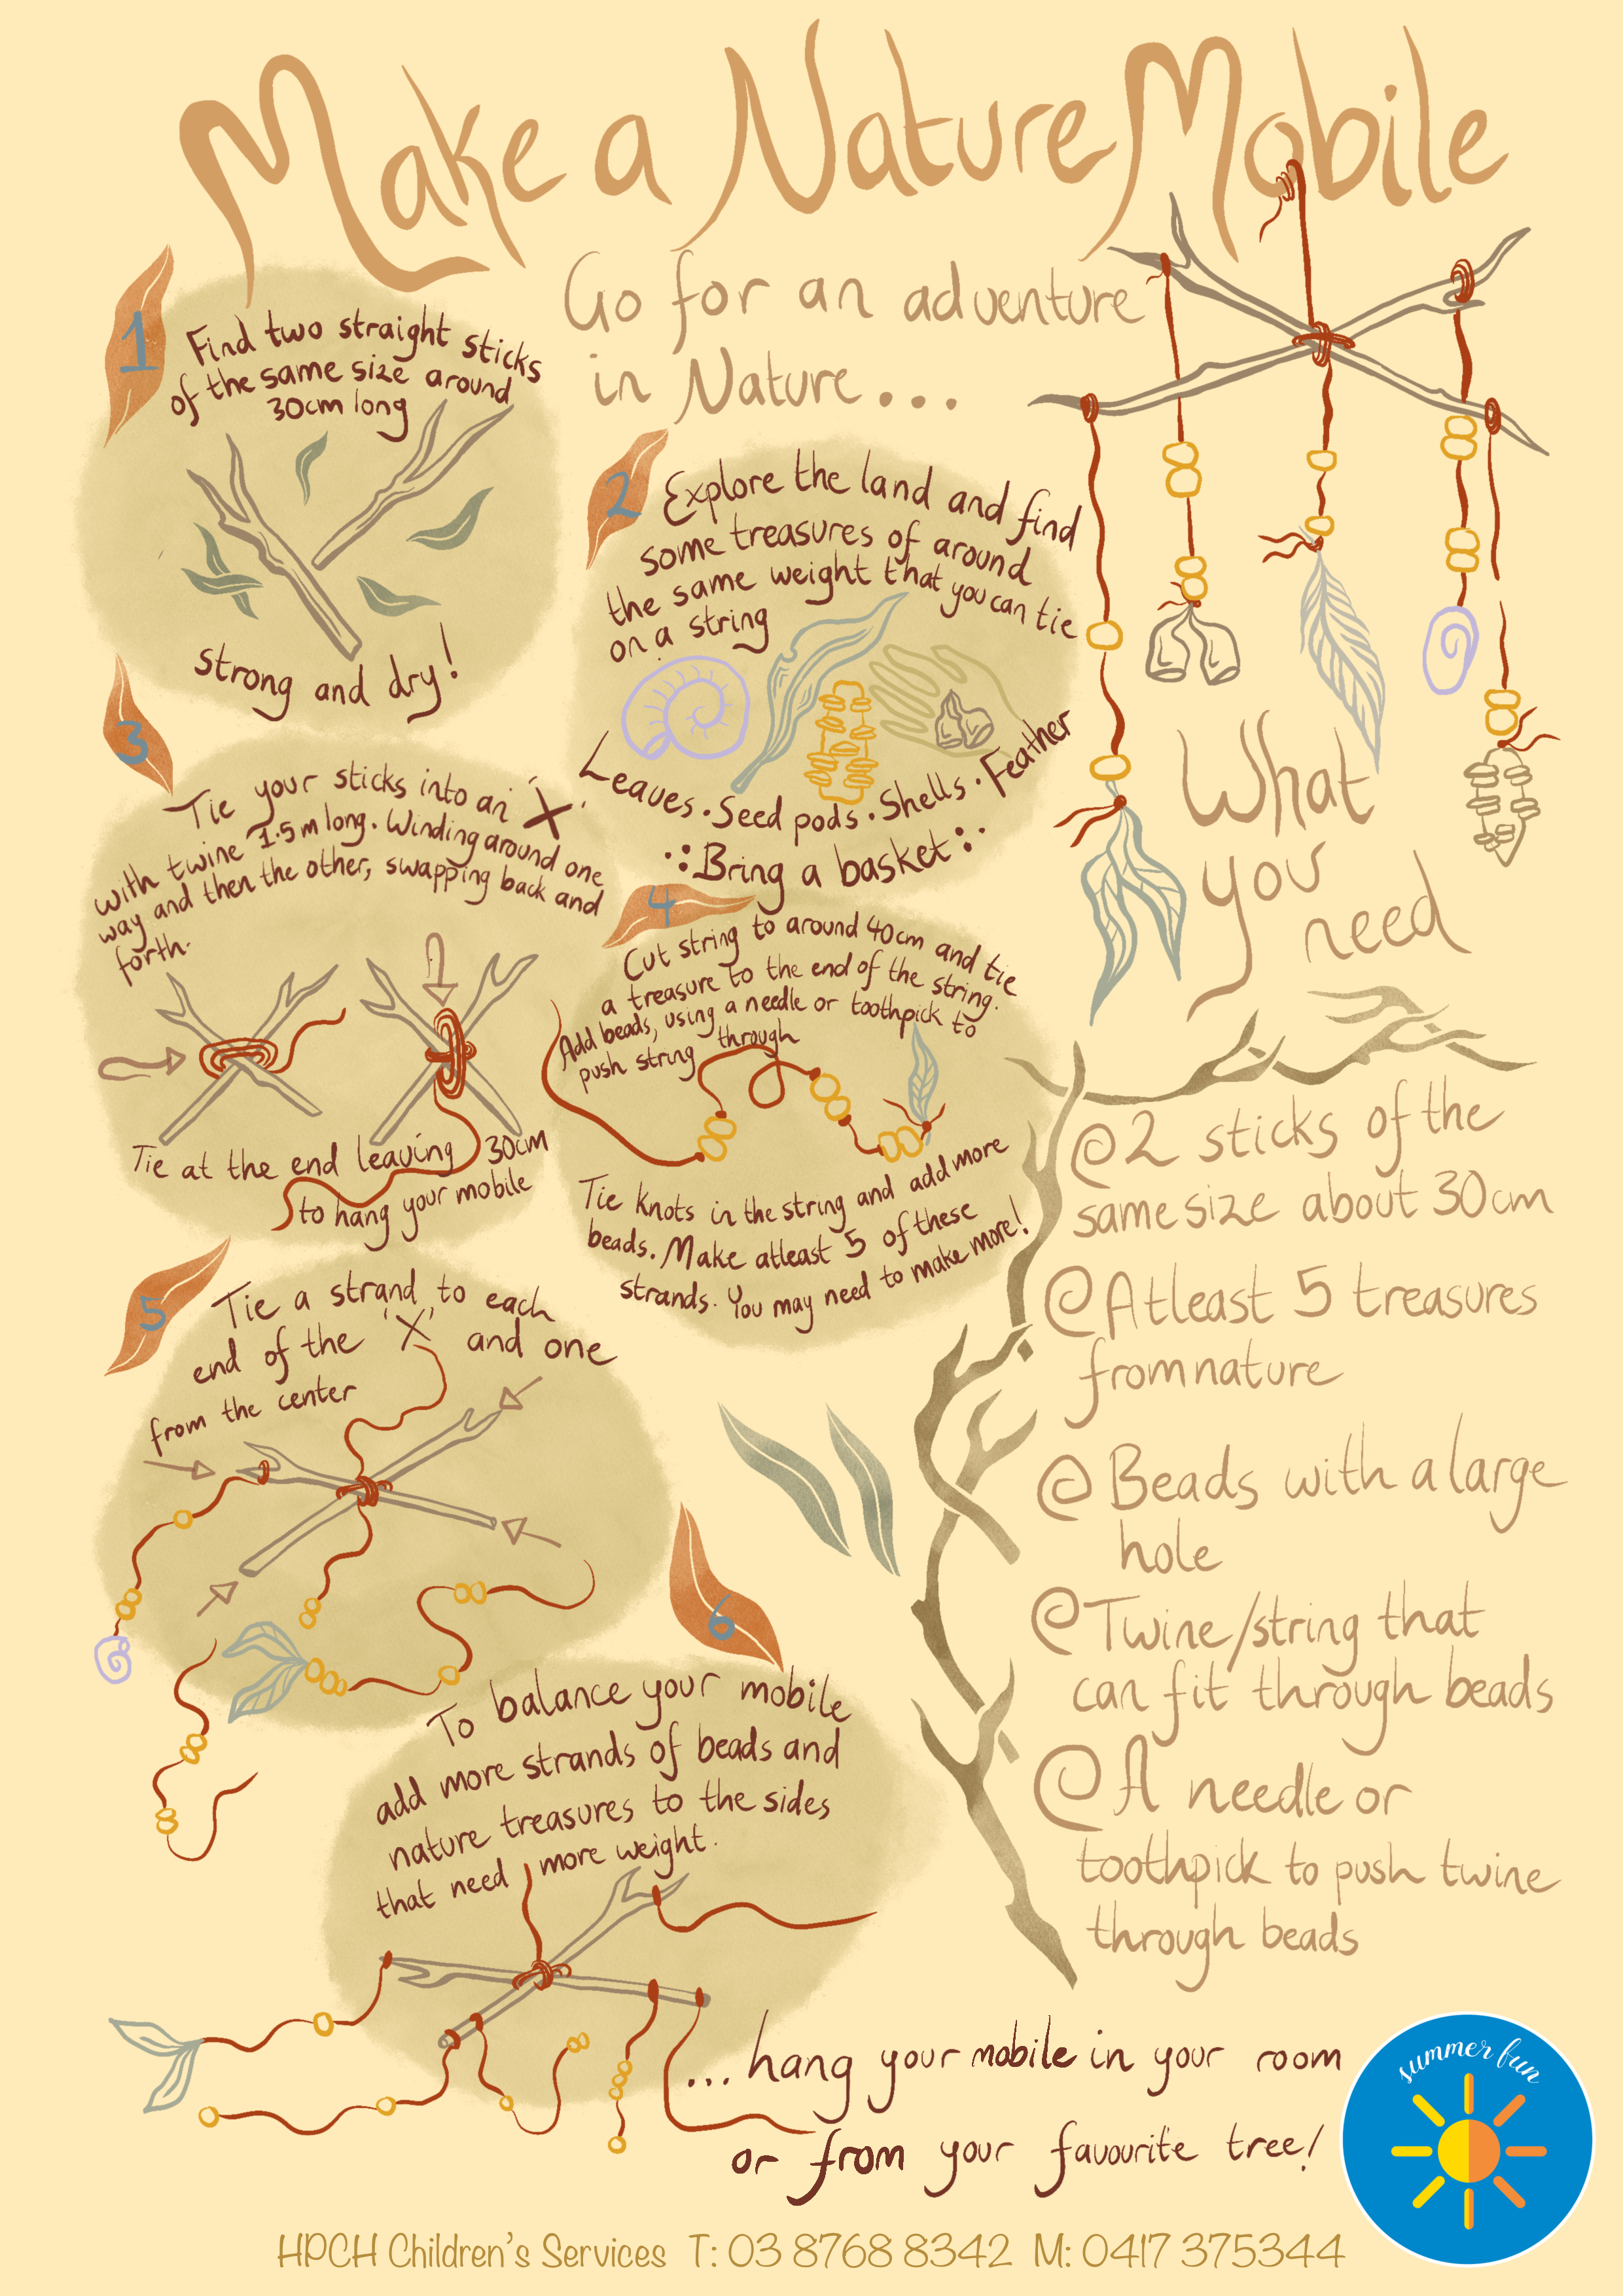 Make a Nature Mobile
Go for an adventure
in Nature...
1
Find two straight sticks
of the same size around
30cm long
strong and dry!
2
Explore the land and find
some treasures of around
the same weight that you can tie
on a string
Leaves · Seed pods · Shells · Feather
Bring a basket
3
Tie your sticks into an 'X'
with twine 1.5m long. Winding around one
way and then the other, swapping back and
forth.
Tie at the end leaving 30cm
to hang your mobile
4
Cut string to around 40cm and tie
a treasure to the end of the string.
Add beads, using a needle or toothpick to
push string through
Tie knots in the string and add more
beads. Make atleast 5 of these
strands. You may need to make more!
5
Tie a strand to each
end of the 'X' and one
from the center
6
To balance your mobile
add more strands of beads and
nature treasures to the sides
that need more weight.
What
you
need
@2 sticks of the
same size about 30cm
@Atleast 5 treasures
from nature
@Beads with a large
hole
@Twine/string that
can fit through beads
@A needle or
toothpick to push twine
through beads
...hang your mobile in your room
or from your favourite tree!
summer fun
HPCH Children's Services T: 03 8768 8342 M: 0417 375344